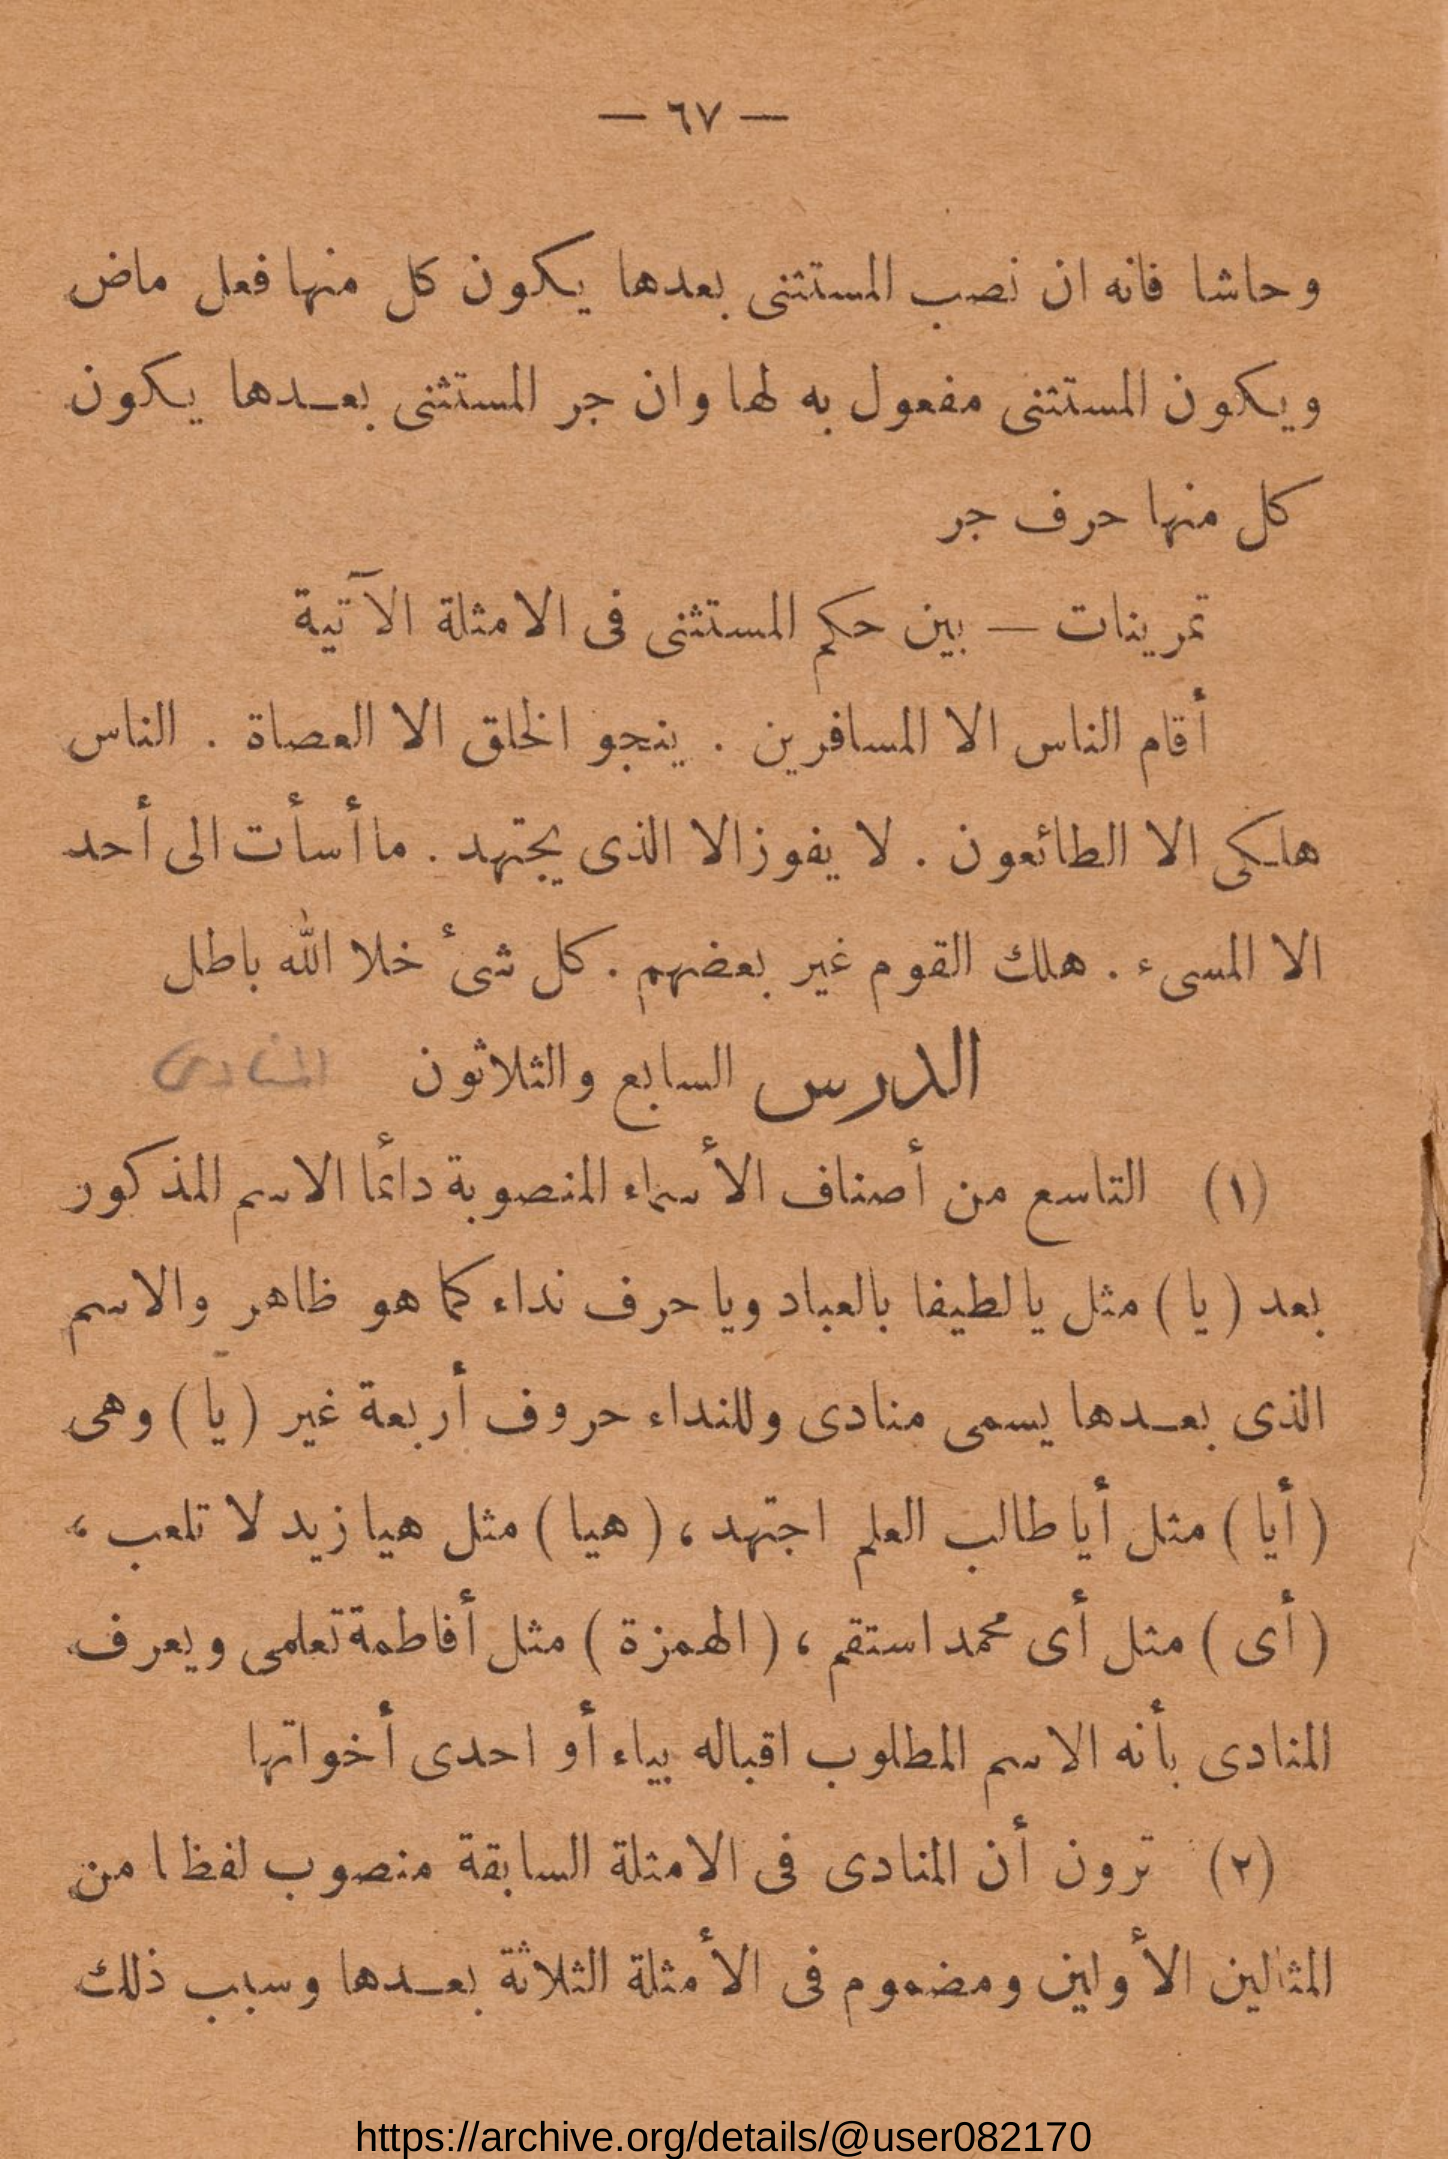 — ٦٧ —
وحاشا فانه ان نصب المستثنى بعدها يكون كل منها فعل ماض
ويكون المستثنى مفعول به لها وان جر المستثنى بعدها يكون
كل منها حرف جر
تمرينات — بين حكم المستثنى فى الامثلة الآتية
أقام الناس الا المسافرين . ينجو الخلق الا العصاة . الناس
هلكى الا الطائعون . لا يفوز الا الذى يجتهد . ما أسأت الى أحد
الا المسىء . هلك القوم غير بعضهم . كل شئ خلا الله باطل
الدرس السابع والثلاثون المنادى
(١) التاسع من أصناف الأسماء المنصوبة دائما الاسم المذكور
بعد ( يا ) مثل يا لطيفا بالعباد ويا حرف نداء كما هو ظاهر والاسم
الذى بعدها يسمى منادى وللنداء حروف أربعة غير ( يا ) وهى
( أيا ) مثل أيا طالب العلم اجتهد ، ( هيا ) مثل هيا زيد لا تلعب ،
( أى ) مثل أى محمد استقم ، ( الهمزة ) مثل أفاطمة تعلمى ويعرف
المنادى بأنه الاسم المطلوب اقباله بياء أو احدى أخواتها
(٢) ترون أن المنادى فى الامثلة السابقة منصوب لفظا من
المثالين الأولين ومضموم فى الأمثلة الثلاثة بعدها وسبب ذلك
https://archive.org/details/@user082170